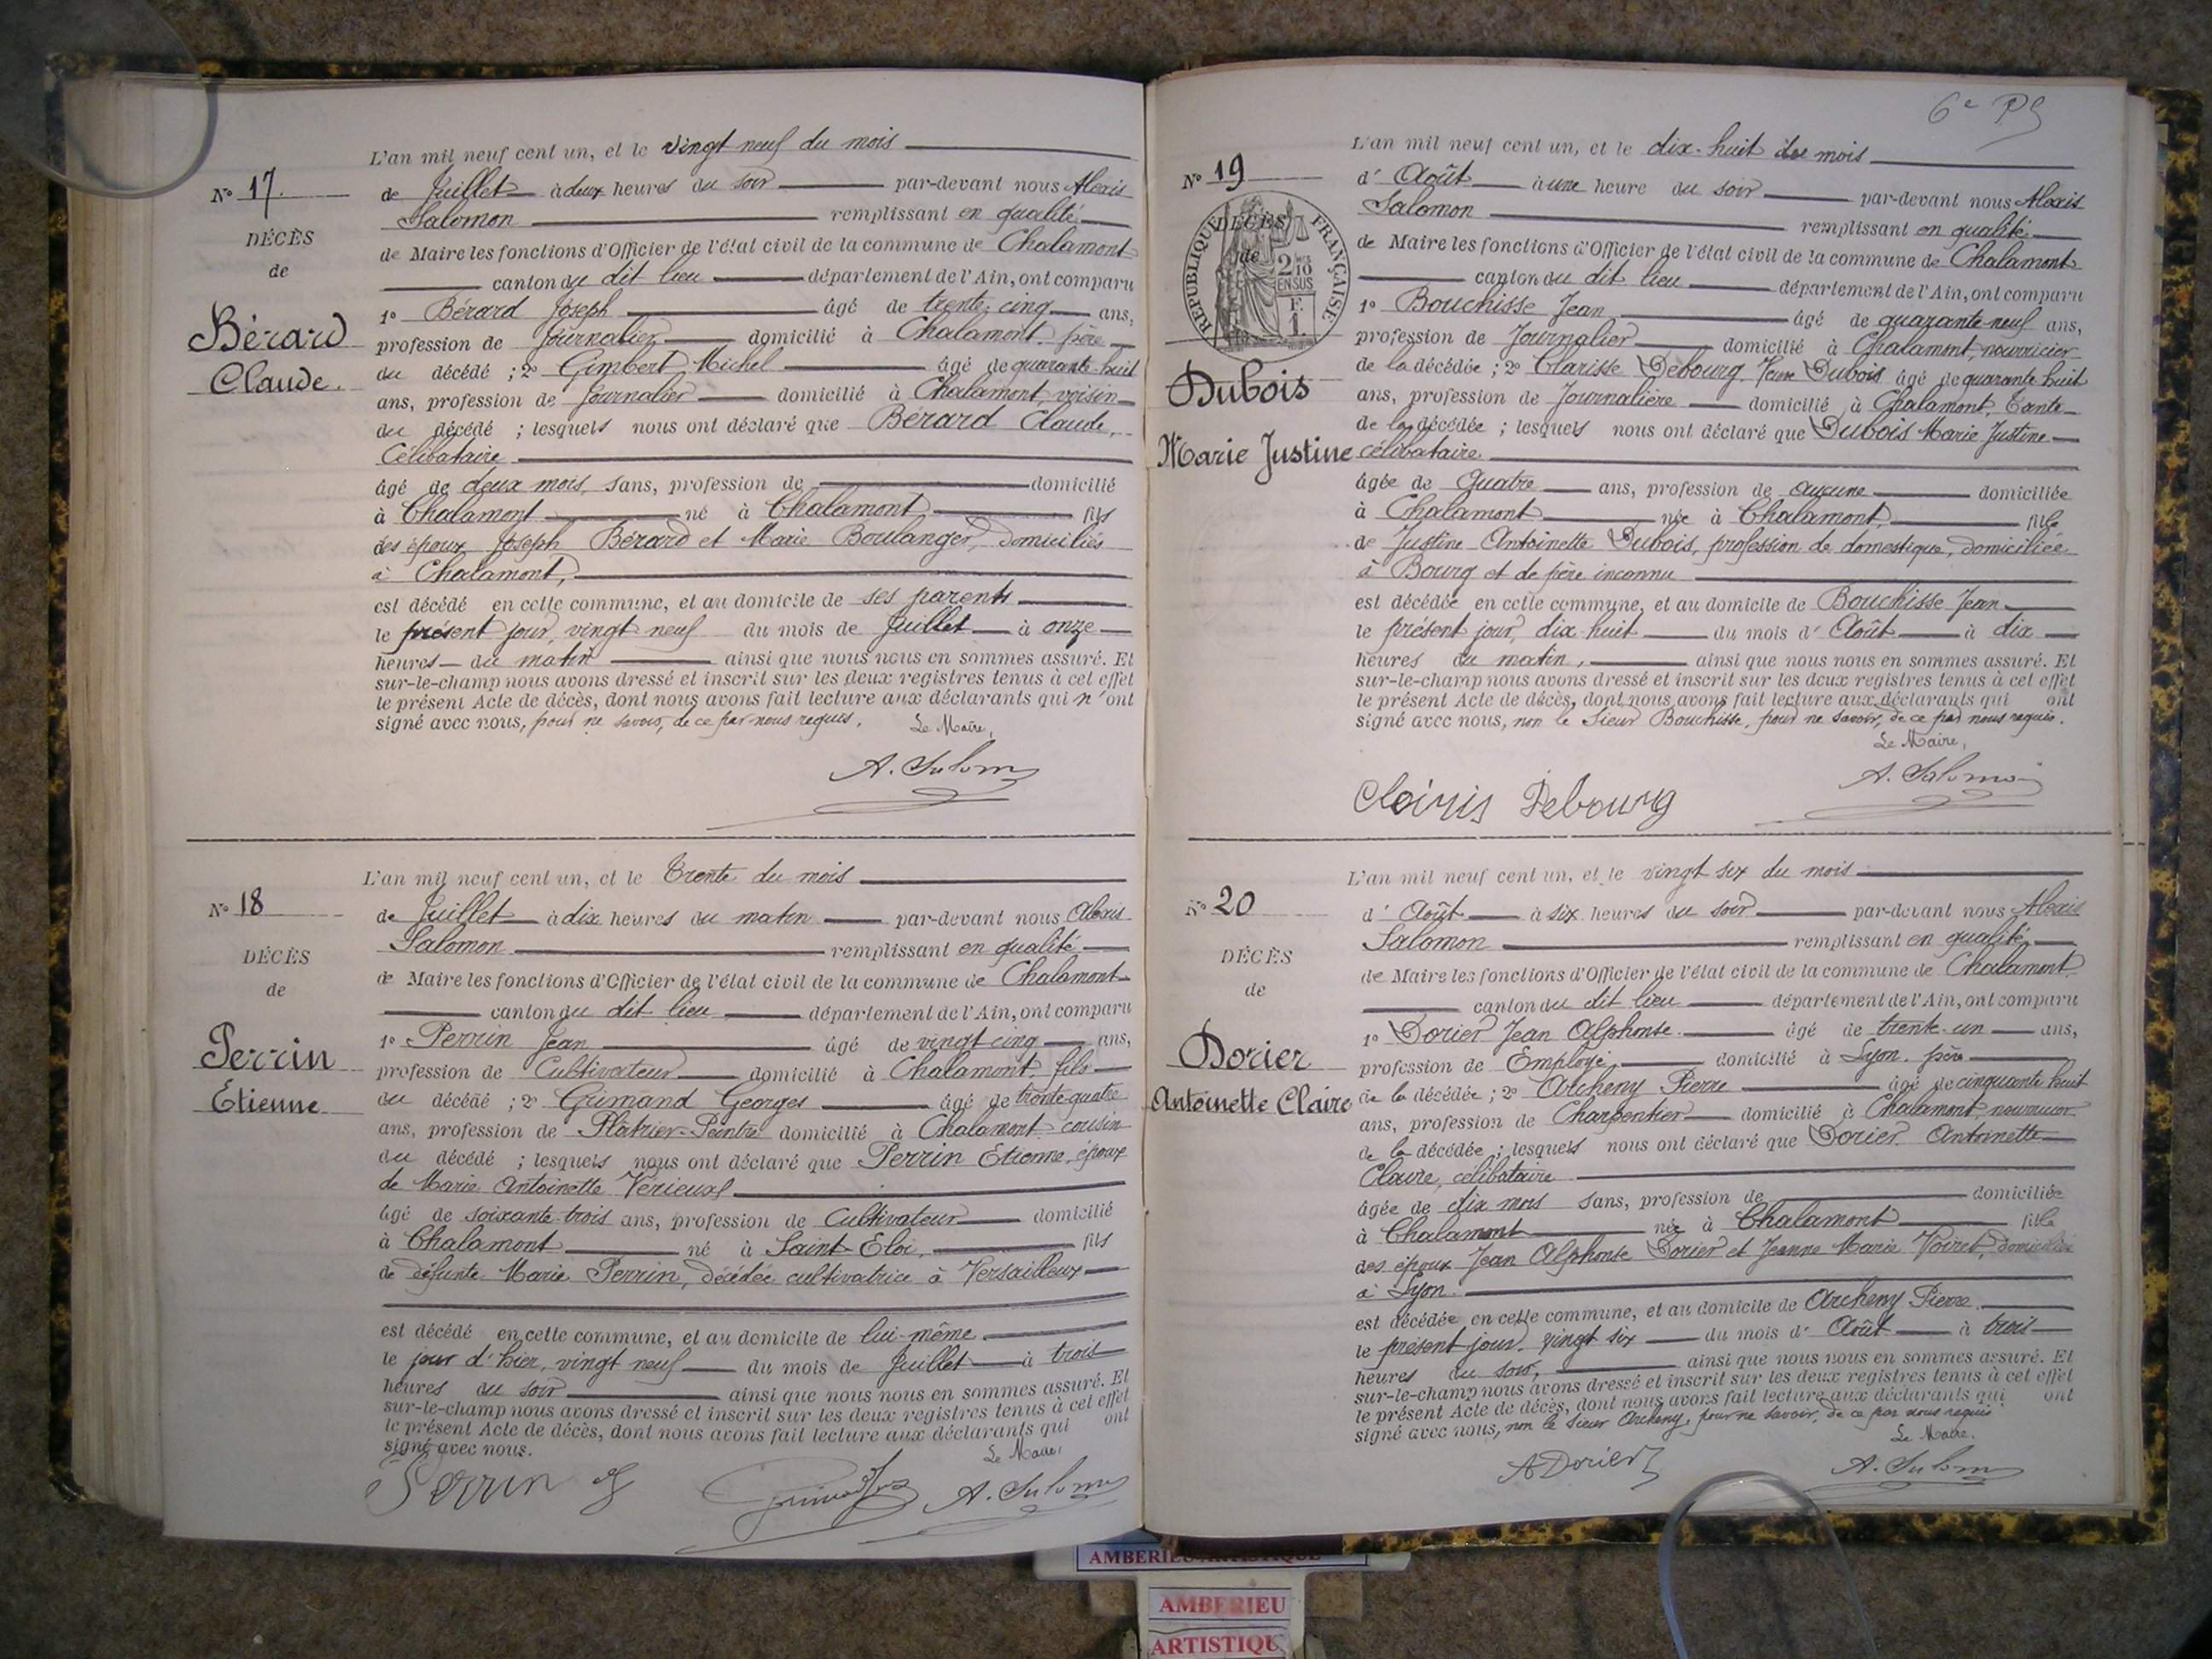 L'an mil neuf cent un, et le vingt neuf du mois
N° 17.
de Juillet à deux heures du soir par-devant nous Alexis
Salomon remplissant en qualité
DÉCÈS
de Maire les fonctions d'Officier de l'état civil de la commune de Chalamont
de
canton du dit lieu département de l'Ain, ont comparu
1° Bérard Joseph âgé de trente-cinq ans,
Bérard
profession de Journalier domicilié à Chalamont, père
Claude.
du décédé ; 2° Gimbert Michel âgé de quarante huit
ans, profession de Journalier domicilié à Chalamont, voisin
du décédé ; lesquels nous ont déclaré que Bérard Claude,
Célibataire
âgé de deux mois, sans, profession de domicilié
à Chalamont né à Chalamont, fils
des époux Joseph Bérard et Marie Boulanger, domiciliés
à Chalamont,
est décédé en cette commune, et au domicile de ses parents
le présent jour, vingt-neuf du mois de Juillet à onze
heures du matin ainsi que nous nous en sommes assuré. Et
sur-le-champ nous avons dressé et inscrit sur les deux registres tenus à cet effet
le présent Acte de décès, dont nous avons fait lecture aux déclarants qui n'ont
signé avec nous, pour ne savoir, de ce par nous requis.
Le Maire,
A. Salomon
L'an mil neuf cent un, et le Trente du mois
N° 18
de Juillet à dix heures du matin par-devant nous Alexis
Salomon remplissant en qualité
DÉCÈS
de Maire les fonctions d'Officier de l'état civil de la commune de Chalamont
de
canton du dit lieu département de l'Ain, ont comparu
1° Perrin Jean âgé de vingt cinq ans,
Perrin
profession de Cultivateur domicilié à Chalamont, fils
Etienne
du décédé ; 2° Guimand Georges âgé de trente-quatre
ans, profession de Plâtrier-Peintre domicilié à Chalamont cousin
du décédé ; lesquels nous ont déclaré que Perrin Etienne, époux
de Marie Antoinette Vérieux
âgé de soixante-trois ans, profession de Cultivateur domicilié
à Chalamont né à Saint-Eloi, fils
de défunte Marie Perrin, décédée cultivatrice à Versailleux
est décédé en cette commune, et au domicile de lui-même
le jour d'hier, vingt neuf du mois de Juillet à trois
heures du soir ainsi que nous nous en sommes assuré. Et
sur-le-champ nous avons dressé et inscrit sur les deux registres tenus à cet effet
le présent Acte de décès, dont nous avons fait lecture aux déclarants qui ont
signé avec nous.
Le Maire,
Perrin
A. Salomon
6e
L'an mil neuf cent un, et le dix-huit du mois
N° 19
d'Août à une heure du soir par-devant nous Alexis
Salomon remplissant en qualité
DÉCÈS
de
RÉPUBLIQUE FRANÇAISE
2/10 EN SUS
F. 1.
de Maire les fonctions d'Officier de l'état civil de la commune de Chalamont
canton du dit lieu département de l'Ain, ont comparu
1° Bouchisse Jean âgé de quarante-neuf ans,
profession de Journalier domicilié à Chalamont, nourricier
Dubois
de la décédée ; 2° Clarisse Debourg, Veuve Dubois âgé de quarante huit
ans, profession de Journalière domicilié à Chalamont, Tante
Marie Justine
de la décédée ; lesquels nous ont déclaré que Dubois Marie Justine
célibataire
âgée de Quatre ans, profession de aucune domiciliée
à Chalamont née à Chalamont, fille
de Justine Antoinette Dubois, profession de domestique, domiciliée
à Bourg et de père inconnu
est décédée en cette commune, et au domicile de Bouchisse Jean
le présent jour, dix huit du mois d'Août à dix
heures du matin, ainsi que nous nous en sommes assuré. Et
sur-le-champ nous avons dressé et inscrit sur les deux registres tenus à cet effet
le présent Acte de décès, dont nous avons fait lecture aux déclarants qui ont
signé avec nous, non le Sieur Bouchisse, pour ne savoir, de ce par nous requis.
Le Maire,
A. Salomon
Debourg
L'an mil neuf cent un, et le vingt six du mois
N° 20
d'Août à six heures du soir par-devant nous Alexis
Salomon remplissant en qualité
DÉCÈS
de Maire les fonctions d'Officier de l'état civil de la commune de Chalamont
de
canton du dit lieu département de l'Ain, ont comparu
1° Dorier Jean Alphonse âgé de trente-un ans,
Dorier
profession de Employé domicilié à Lyon, père
Antoinette Claire
de la décédée ; 2° Archeny Pierre âgé de cinquante huit
ans, profession de Charpentier domicilié à Chalamont, nourricier
de la décédée ; lesquels nous ont déclaré que Dorier Antoinette
Claire, célibataire
âgée de dix mois sans, profession de domiciliée
à Chalamont née à Chalamont fille
des époux Jean Alphonse Dorier et Jeanne Marie Voiret, domiciliés
à Lyon.
est décédée en cette commune, et au domicile de Archeny Pierre.
le présent jour, vingt six du mois d'Août à trois
heures du soir, ainsi que nous nous en sommes assuré. Et
sur-le-champ nous avons dressé et inscrit sur les deux registres tenus à cet effet
le présent Acte de décès, dont nous avons fait lecture aux déclarants qui ont
signé avec nous, non le Sieur Archeny, pour ne savoir, de ce par nous requis
Le Maire.
A Dorier
A. Salomon
AMBERIEU ARTISTIQUE
AMBERIEU
ARTISTIQU